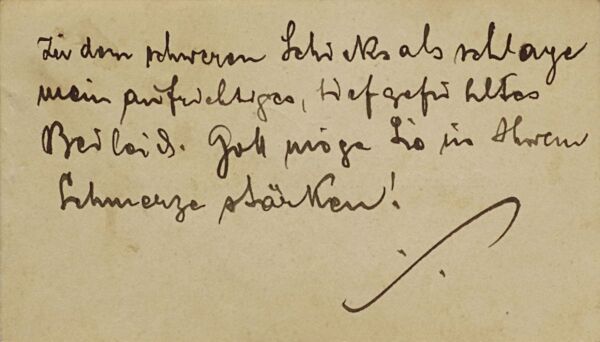 Zu dem schweren Schicksalsschlage
mein aufrichtiges, tiefgefühltes
Beileid. Gott möge Sie in Ihrem
Schmerze stärken!